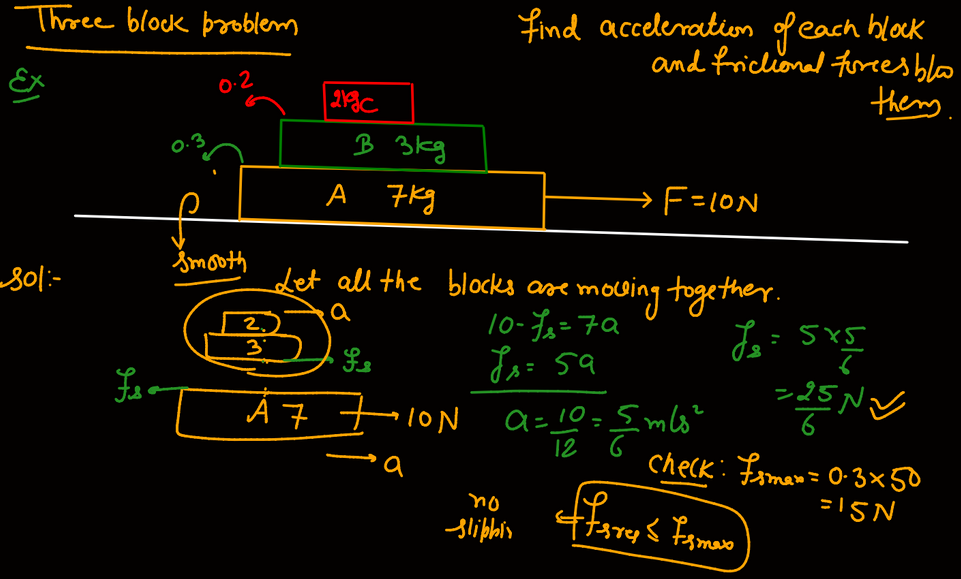 Three block problem
Find acceleration of each block
and frictional forces b/w
them.
Ex
0.2
2kg C
0.3
B 3kg
A 7kg
F = 10N
smooth
Sol:-
Let all the blocks are moving together.
2
a
3
fs
fs
A 7
10N
a
10 - fs = 7a
fs = 5a
a = 10/12 = 5/6 m/s²
fs = 5 × 5/6
= 25/6 N
check: fsmax = 0.3 × 50
= 15 N
no
fsreq ≤ fsmax